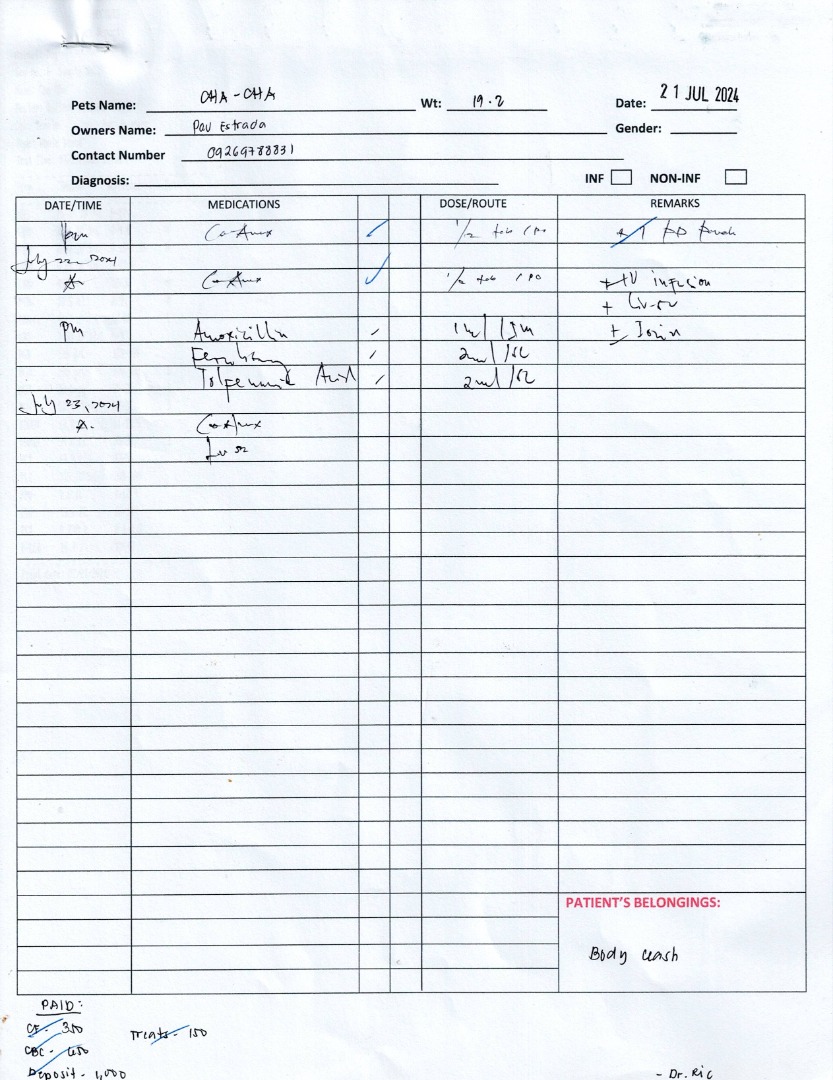 Pets Name: CHA-CHA Wt: 19.2 Date: 21 JUL 2024
Owners Name: Pau Estrada Gender:
Contact Number 09269788831
Diagnosis: INF NON-INF
DATE/TIME MEDICATIONS DOSE/ROUTE REMARKS
pm Co-Amox 1/2 tab / PO
July 22, 2024
A Co-Amox 1/2 tab / PO + IV infusion
+ Liv-52
pm Amoxicillin 1ml /IM
2ml /SC
Tolfenamic Acid 2ml /SC
July 23, 2024
A. Co-Amox
Liv 52
PATIENT'S BELONGINGS:
Body leash
PAID:
CF - 350 Treats - 150
CBC - 650
Deposit - 1,000
- Dr. Ric